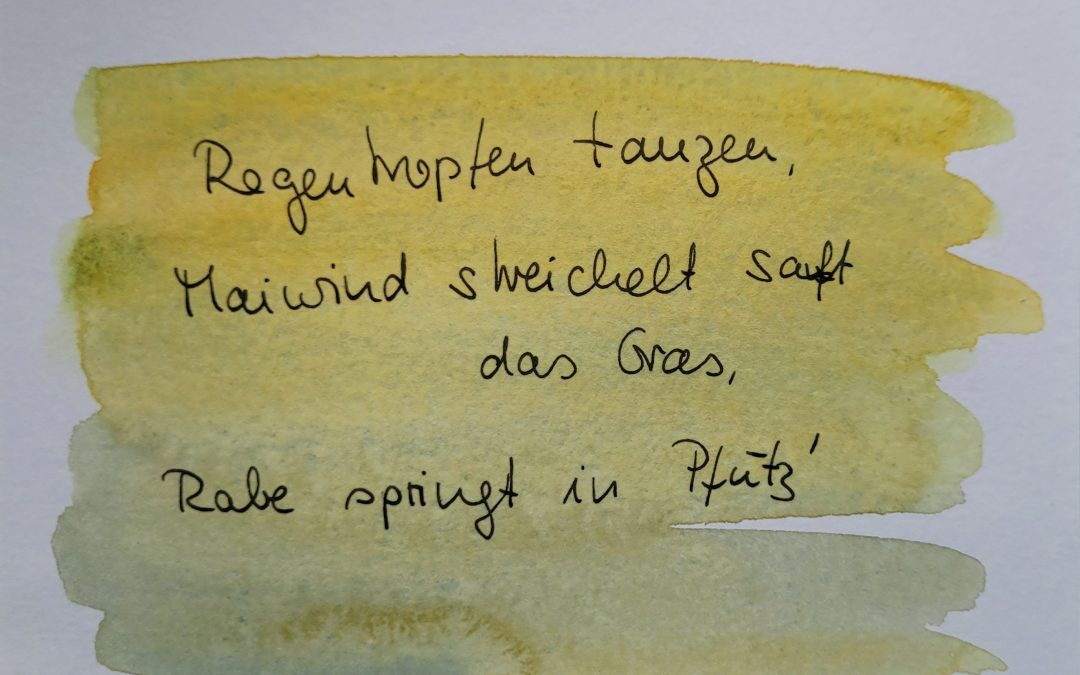 Regentropfen tanzen,
Maiwind streichelt sanft
das Gras,
Rabe springt in Pfütz'